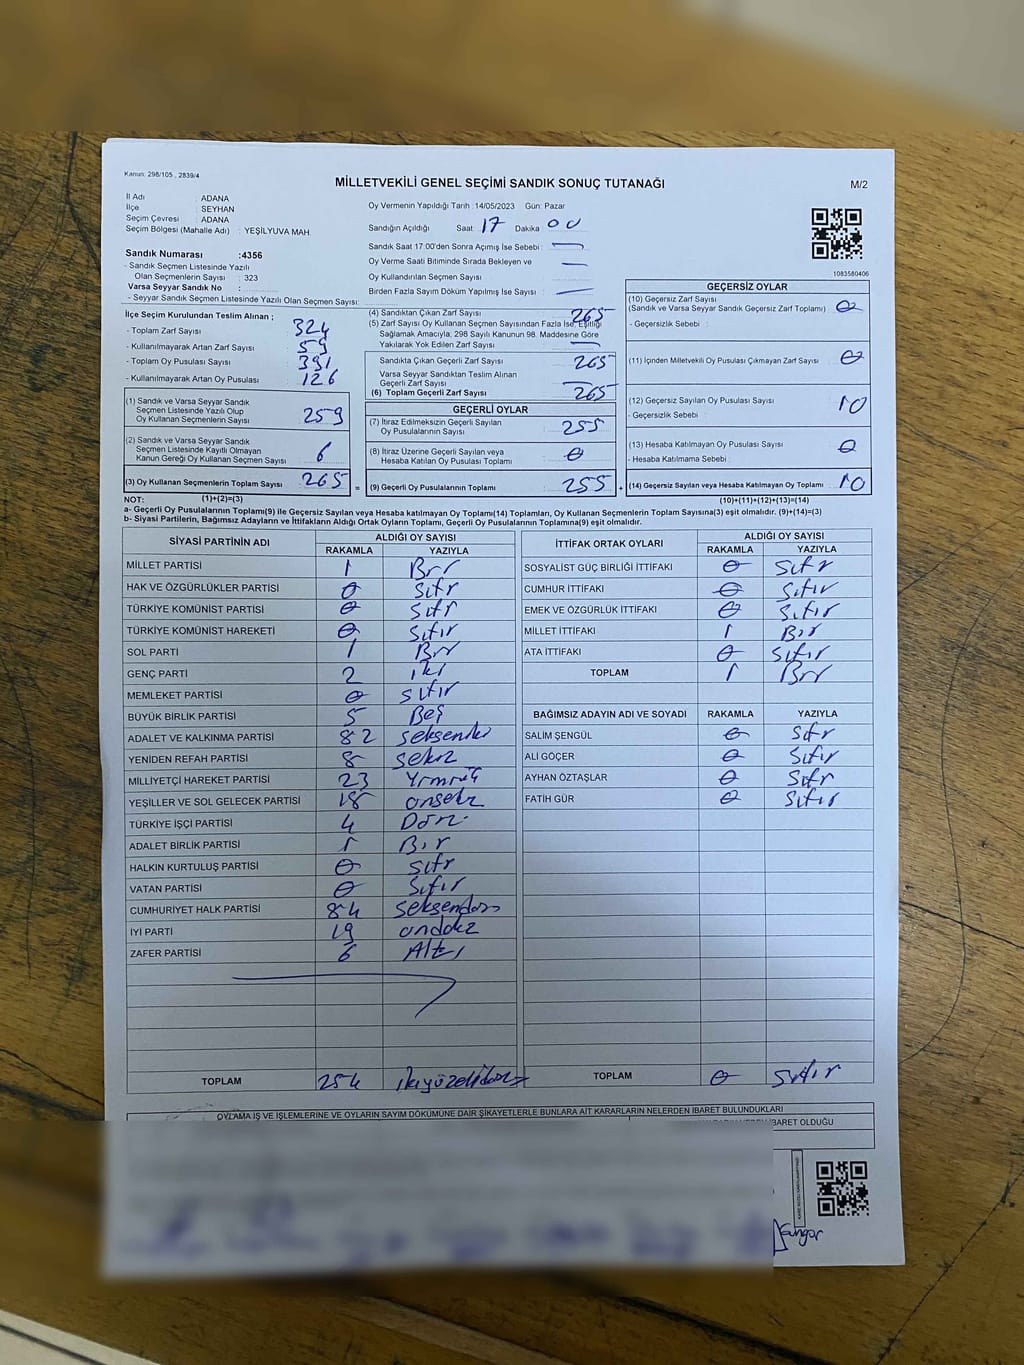 Kanun: 298/105 , 2839/4
MİLLETVEKİLİ GENEL SEÇİMİ SANDIK SONUÇ TUTANAĞI
M/2
İl Adı : ADANA
İlçe : SEYHAN
Seçim Çevresi : ADANA
Seçim Bölgesi (Mahalle Adı) : YEŞİLYUVA MAH.
Oy Vermenin Yapıldığı Tarih :14/05/2023 Gün: Pazar
Sandığın Açıldığı Saat 17 Dakika 00
Sandık Saat 17:00'den Sonra Açımış İse Sebebi : —
Oy Verme Saati Bitiminde Sırada Bekleyen ve —
Oy Kullandırılan Seçmen Sayısı :
Birden Fazla Sayım Döküm Yapılmış İse Sayısı : —
1083580406
Sandık Numarası :4356
- Sandık Seçmen Listesinde Yazılı
Olan Seçmenlerin Sayısı : 323
Varsa Seyyar Sandık No :
- Seyyar Sandık Seçmen Listesinde Yazılı Olan Seçmen Sayısı:
İlçe Seçim Kurulundan Teslim Alınan ;
- Toplam Zarf Sayısı : 324
- Kullanılmayarak Artan Zarf Sayısı : 59
- Toplam Oy Pusulası Sayısı : 391
- Kullanılmayarak Artan Oy Pusulası : 126
(1) Sandık ve Varsa Seyyar Sandık
Seçmen Listesinde Yazılı Olup
Oy Kullanan Seçmenlerin Sayısı : 259
(2) Sandık ve Varsa Seyyar Sandık
Seçmen Listesinde Kayıtlı Olmayan
Kanun Gereği Oy Kullanan Seçmen Sayısı : 6
(3) Oy Kullanan Seçmenlerin Toplam Sayısı : 265
(4) Sandıktan Çıkan Zarf Sayısı : 265
(5) Zarf Sayısı Oy Kullanan Seçmen Sayısından Fazla İse, Eşitliği
Sağlamak Amacıyla, 298 Sayılı Kanunun 98. Maddesine Göre
Yakılarak Yok Edilen Zarf Sayısı : —
Sandıkta Çıkan Geçerli Zarf Sayısı : 265
Varsa Seyyar Sandıktan Teslim Alınan
Geçerli Zarf Sayısı : —
(6) Toplam Geçerli Zarf Sayısı : 265
GEÇERLİ OYLAR
(7) İtiraz Edilmeksizin Geçerli Sayılan
Oy Pusulalarının Sayısı : 255
(8) İtiraz Üzerine Geçerli Sayılan veya
Hesaba Katılan Oy Pusulası Toplamı : 0
= (9) Geçerli Oy Pusulalarının Toplamı : 255 +
GEÇERSİZ OYLAR
(10) Geçersiz Zarf Sayısı
(Sandık ve Varsa Seyyar Sandık Geçersiz Zarf Toplamı) : 0
- Geçersizlik Sebebi :
(11) İçinden Milletvekili Oy Pusulası Çıkmayan Zarf Sayısı : 0
(12) Geçersiz Sayılan Oy Pusulası Sayısı : 10
- Geçersizlik Sebebi :
(13) Hesaba Katılmayan Oy Pusulası Sayısı : 0
- Hesaba Katılmama Sebebi :
(14) Geçersiz Sayılan veya Hesaba Katılmayan Oy Toplamı : 10
NOT: (1)+(2)=(3) (10)+(11)+(12)+(13)=(14)
a- Geçerli Oy Pusulalarının Toplamı(9) ile Geçersiz Sayılan veya Hesaba Katılmayan Oy Toplamı(14) Toplamları, Oy Kullanan Seçmenlerin Toplam Sayısına(3) eşit olmalıdır. (9)+(14)=(3)
b- Siyasi Partilerin, Bağımsız Adayların ve İttifakların Aldığı Ortak Oyların Toplamı, Geçerli Oy Pusulalarının Toplamına(9) eşit olmalıdır.
SİYASİ PARTİNİN ADI ALDIĞI OY SAYISI
RAKAMLA YAZIYLA
MİLLET PARTİSİ 1 Bir
HAK VE ÖZGÜRLÜKLER PARTİSİ 0 Sıfır
TÜRKİYE KOMÜNİST PARTİSİ 0 Sıfır
TÜRKİYE KOMÜNİST HAREKETİ 0 Sıfır
SOL PARTİ 1 Bir
GENÇ PARTİ 2 iki
MEMLEKET PARTİSİ 0 sıfır
BÜYÜK BİRLİK PARTİSİ 5 Beş
ADALET VE KALKINMA PARTİSİ 82 sekseniki
YENİDEN REFAH PARTİSİ 8 sekiz
MİLLİYETÇİ HAREKET PARTİSİ 23 Yirmiüç
YEŞİLLER VE SOL GELECEK PARTİSİ 18 onsekiz
TÜRKİYE İŞÇİ PARTİSİ 4 Dört
ADALET BİRLİK PARTİSİ 1 Bir
HALKIN KURTULUŞ PARTİSİ 0 sıfır
VATAN PARTİSİ 0 Sıfır
CUMHURİYET HALK PARTİSİ 84 seksendört
İYİ PARTİ 19 ondokuz
ZAFER PARTİSİ 6 Altı
TOPLAM 254 ikiyüzellidört
İTTİFAK ORTAK OYLARI ALDIĞI OY SAYISI
RAKAMLA YAZIYLA
SOSYALİST GÜÇ BİRLİĞİ İTTİFAKI 0 Sıfır
CUMHUR İTTİFAKI 0 Sıfır
EMEK VE ÖZGÜRLÜK İTTİFAKI 0 Sıfır
MİLLET İTTİFAKI 1 Bir
ATA İTTİFAKI 0 Sıfır
TOPLAM 1 Bir
BAĞIMSIZ ADAYIN ADI VE SOYADI RAKAMLA YAZIYLA
SALİM ŞENGÜL 0 Sıfır
ALİ GÖÇER 0 Sıfır
AYHAN ÖZTAŞLAR 0 Sıfır
FATİH GÜR 0 Sıfır
TOPLAM 0 Sıfır
OYLAMA İŞ VE İŞLEMLERİNE VE OYLARIN SAYIM DÖKÜMÜNE DAİR ŞİKAYETLERLE BUNLARA AİT KARARLARIN NELERDEN İBARET BULUNDUKLARI
İBARET OLDUĞU